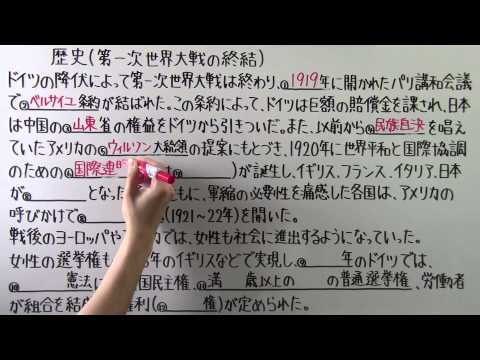 歴史(第一次世界大戦の終結)
ドイツの降伏によって第一次世界大戦は終わり、1919年に開かれたパリ講和会議
でベルサイユ条約が結ばれた。この条約によって、ドイツは巨額の賠償金を課され、日本
は中国の山東省の権益をドイツから引きついだ。また、以前から民族自決を唱え
ていたアメリカのウィルソン大統領の提案にもとづき、1920年に世界平和と国際協調
のための国際連( )が誕生し、イギリス、フランス、イタリア、日本
が となった もに、軍縮の必要性を痛感した各国は、アメリカの
呼びかけで (1921~22年)を開いた。
戦後のヨーロッパや では、女性も社会に進出するようになっていった。
女性の選挙権も 年のイギリスなどで実現し、 年のドイツでは、
憲法に 国民主権、満 歳以上の の普通選挙権、労働者
が組合を結 権利( 権)が定められた。